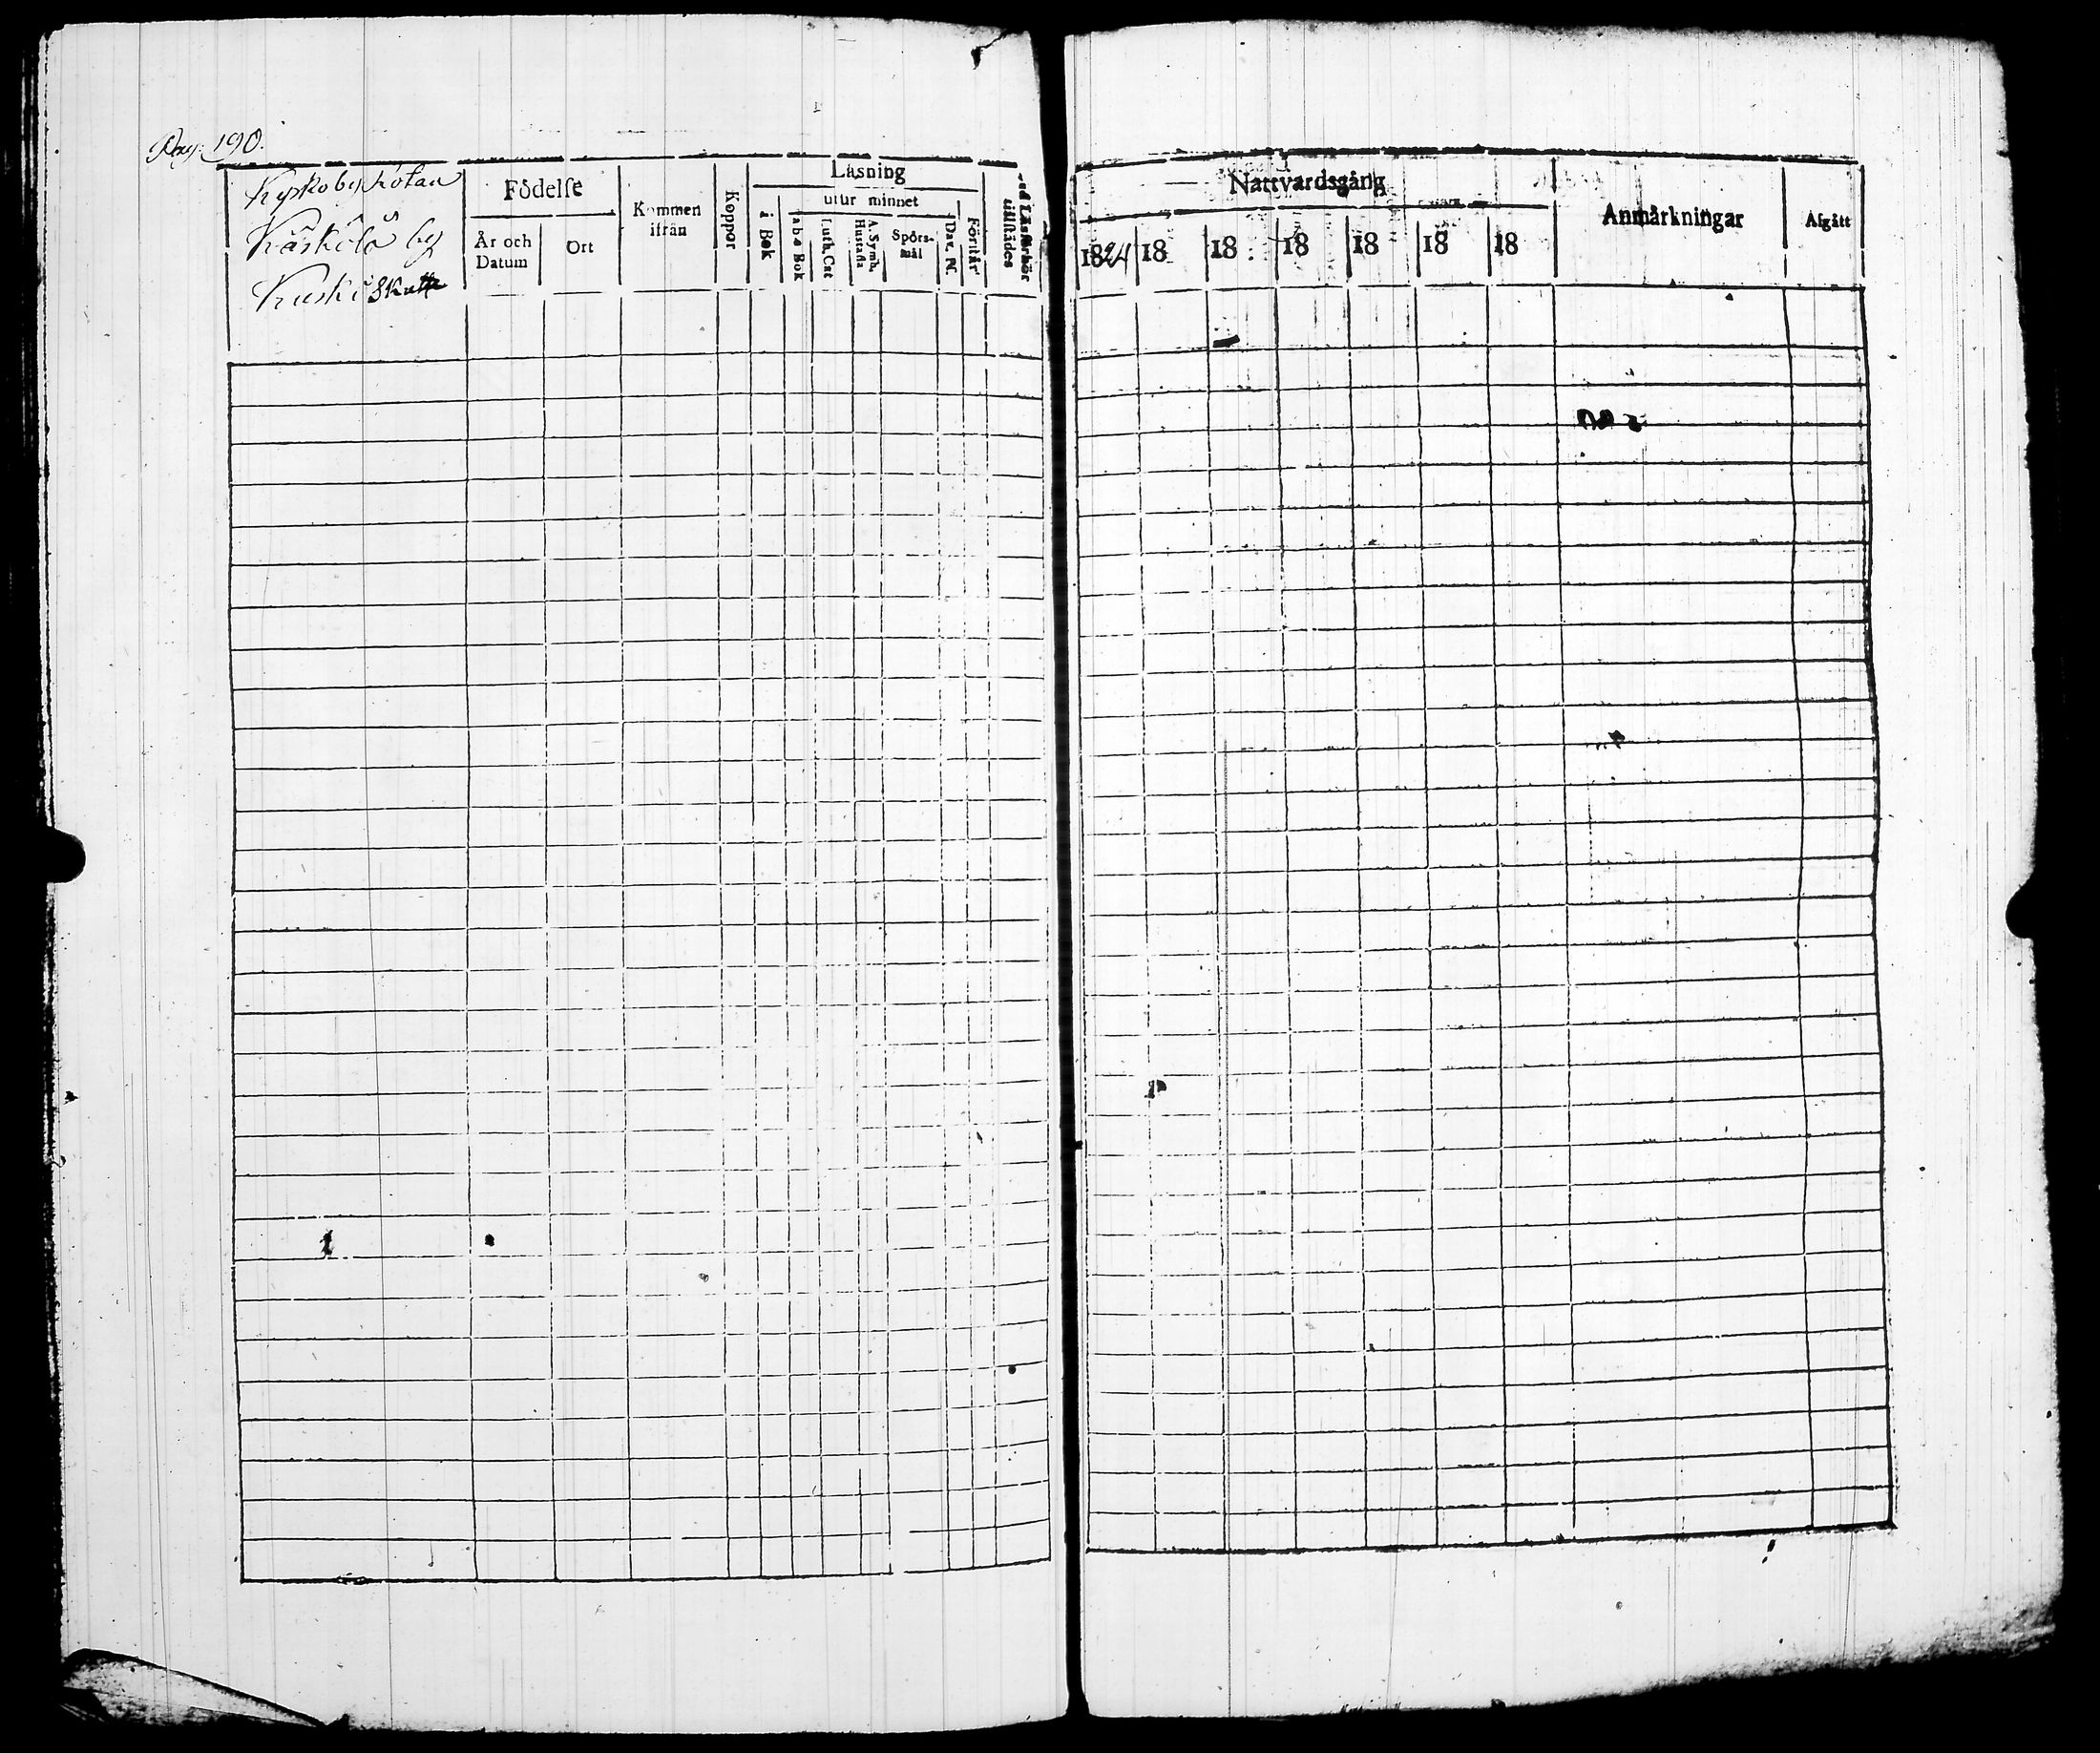 Pag: 190.
Kyrkoby Kotan
Käskölä by
Kuski Skatte
Födelse
År och Datum
Ort
Kommen ifrån
Koppor
Läsning
i Bok
utur minnet
a b c Bok
Luth. Cat
A. Symb. Hustafla
Spörs-mål
Dav. Ps.
Förstår
vid Läsförhör tillstädes
Nattvardsgång
1824 18 18 18 18 18 18
Anmärkningar
Afgått